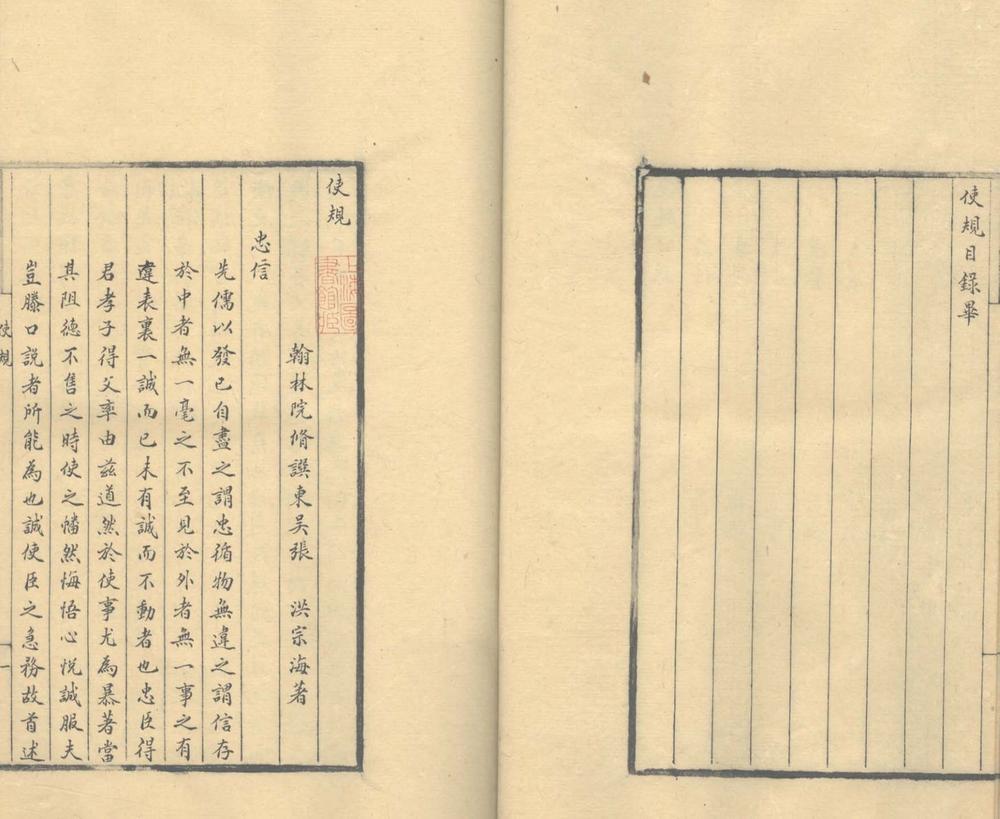 使規目錄畢
使規
上海圖書館藏
翰林院脩譔東吴張 洪宗海著
忠信
先儒以發已自盡之謂忠循物無違之謂信存
於中者無一毫之不至見於外者無一事之有
違表裏一誠而已未有誠而不動者也忠臣得
君孝子得父率由兹道然於使事尤為暴著當
其阻德不售之時使之幡然悔悟心悅誠服夫
豈滕口説者所能為也誠使臣之急務故首述
使規
一